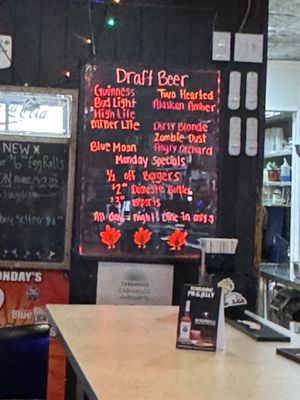 Draft Beer
Guinness
Bud Light
High Life
Miller Lite
Blue Moon
Two Hearted
Alaskan Amber
Dirty Blonde
Zombie Dust
Angry Orchard
Monday Specials
1/2 off Burgers
$2 Domestic Bottles
imports
All day + night! Dine in only
NEW
Egg Rolls
NDAY'S
PB & JELLY